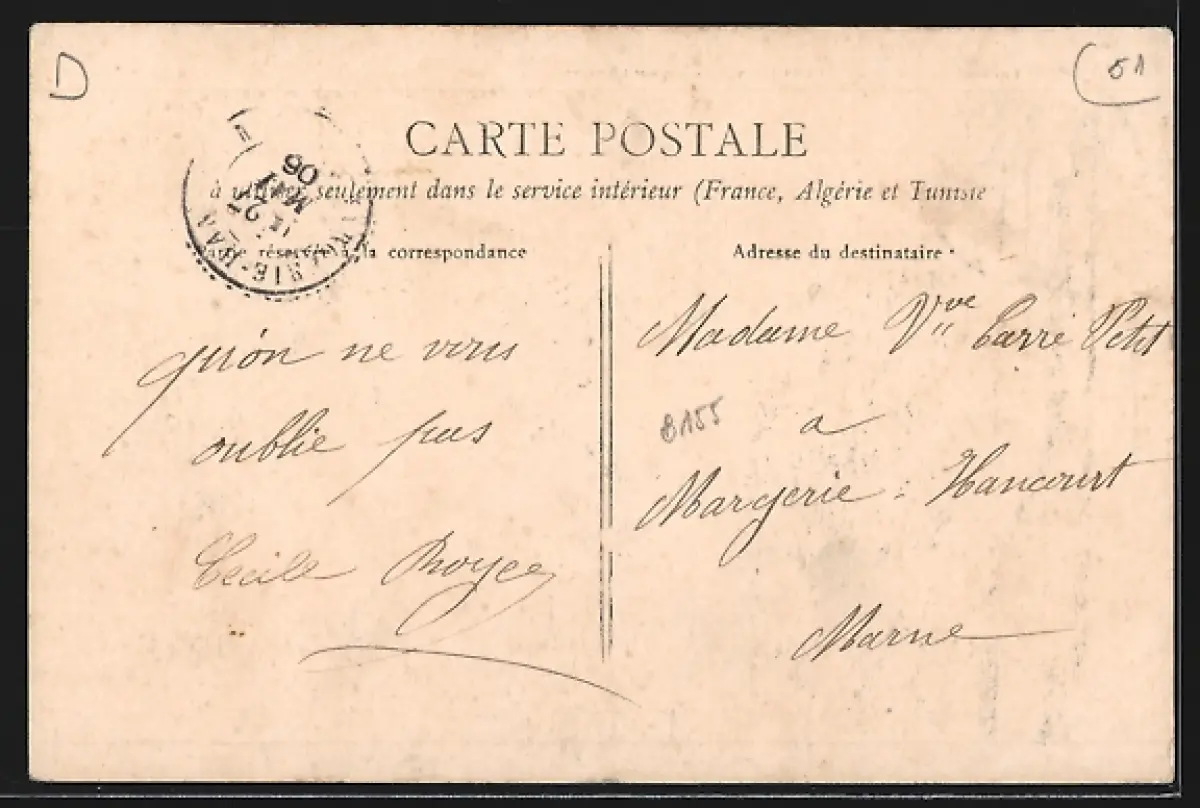 D
51
CARTE POSTALE
à utiliser seulement dans le service intérieur (France, Algérie et Tunisie
réservée à la correspondance
Adresse du destinataire
MAI
06
qu'on ne vous
oublie pas
Cécile
Madame Vve Carré Petit
B155
a
Margerie-Hancourt
Marne